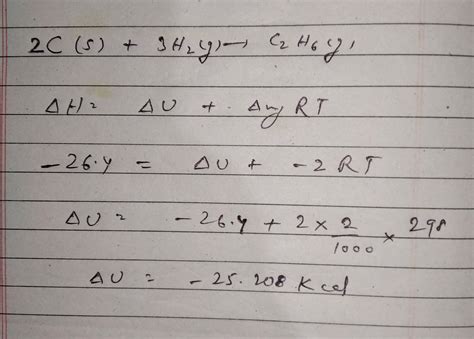 2C (s) + 3H2(g) → C2H6(g)
ΔH = ΔU + Δng RT
-26.4 = ΔU + -2 RT
ΔU = -26.4 + 2 × 2/1000 × 298
ΔU = -25.208 Kcal